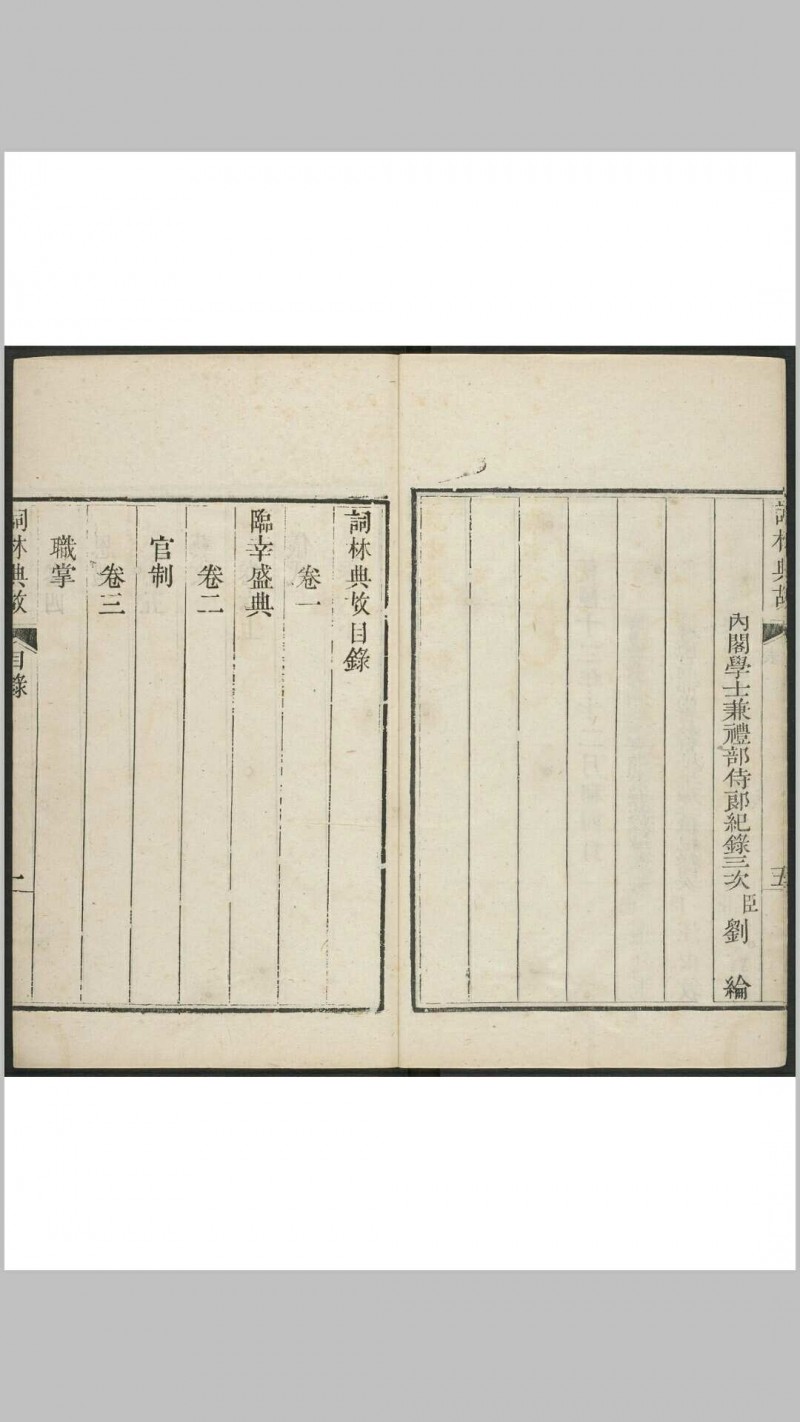 詞林典故
五
內閣學士兼禮部侍郎紀錄三次臣劉綸
詞林典故目錄
卷一
臨幸盛典
卷二
官制
卷三
職掌
詞林典故
目錄
一